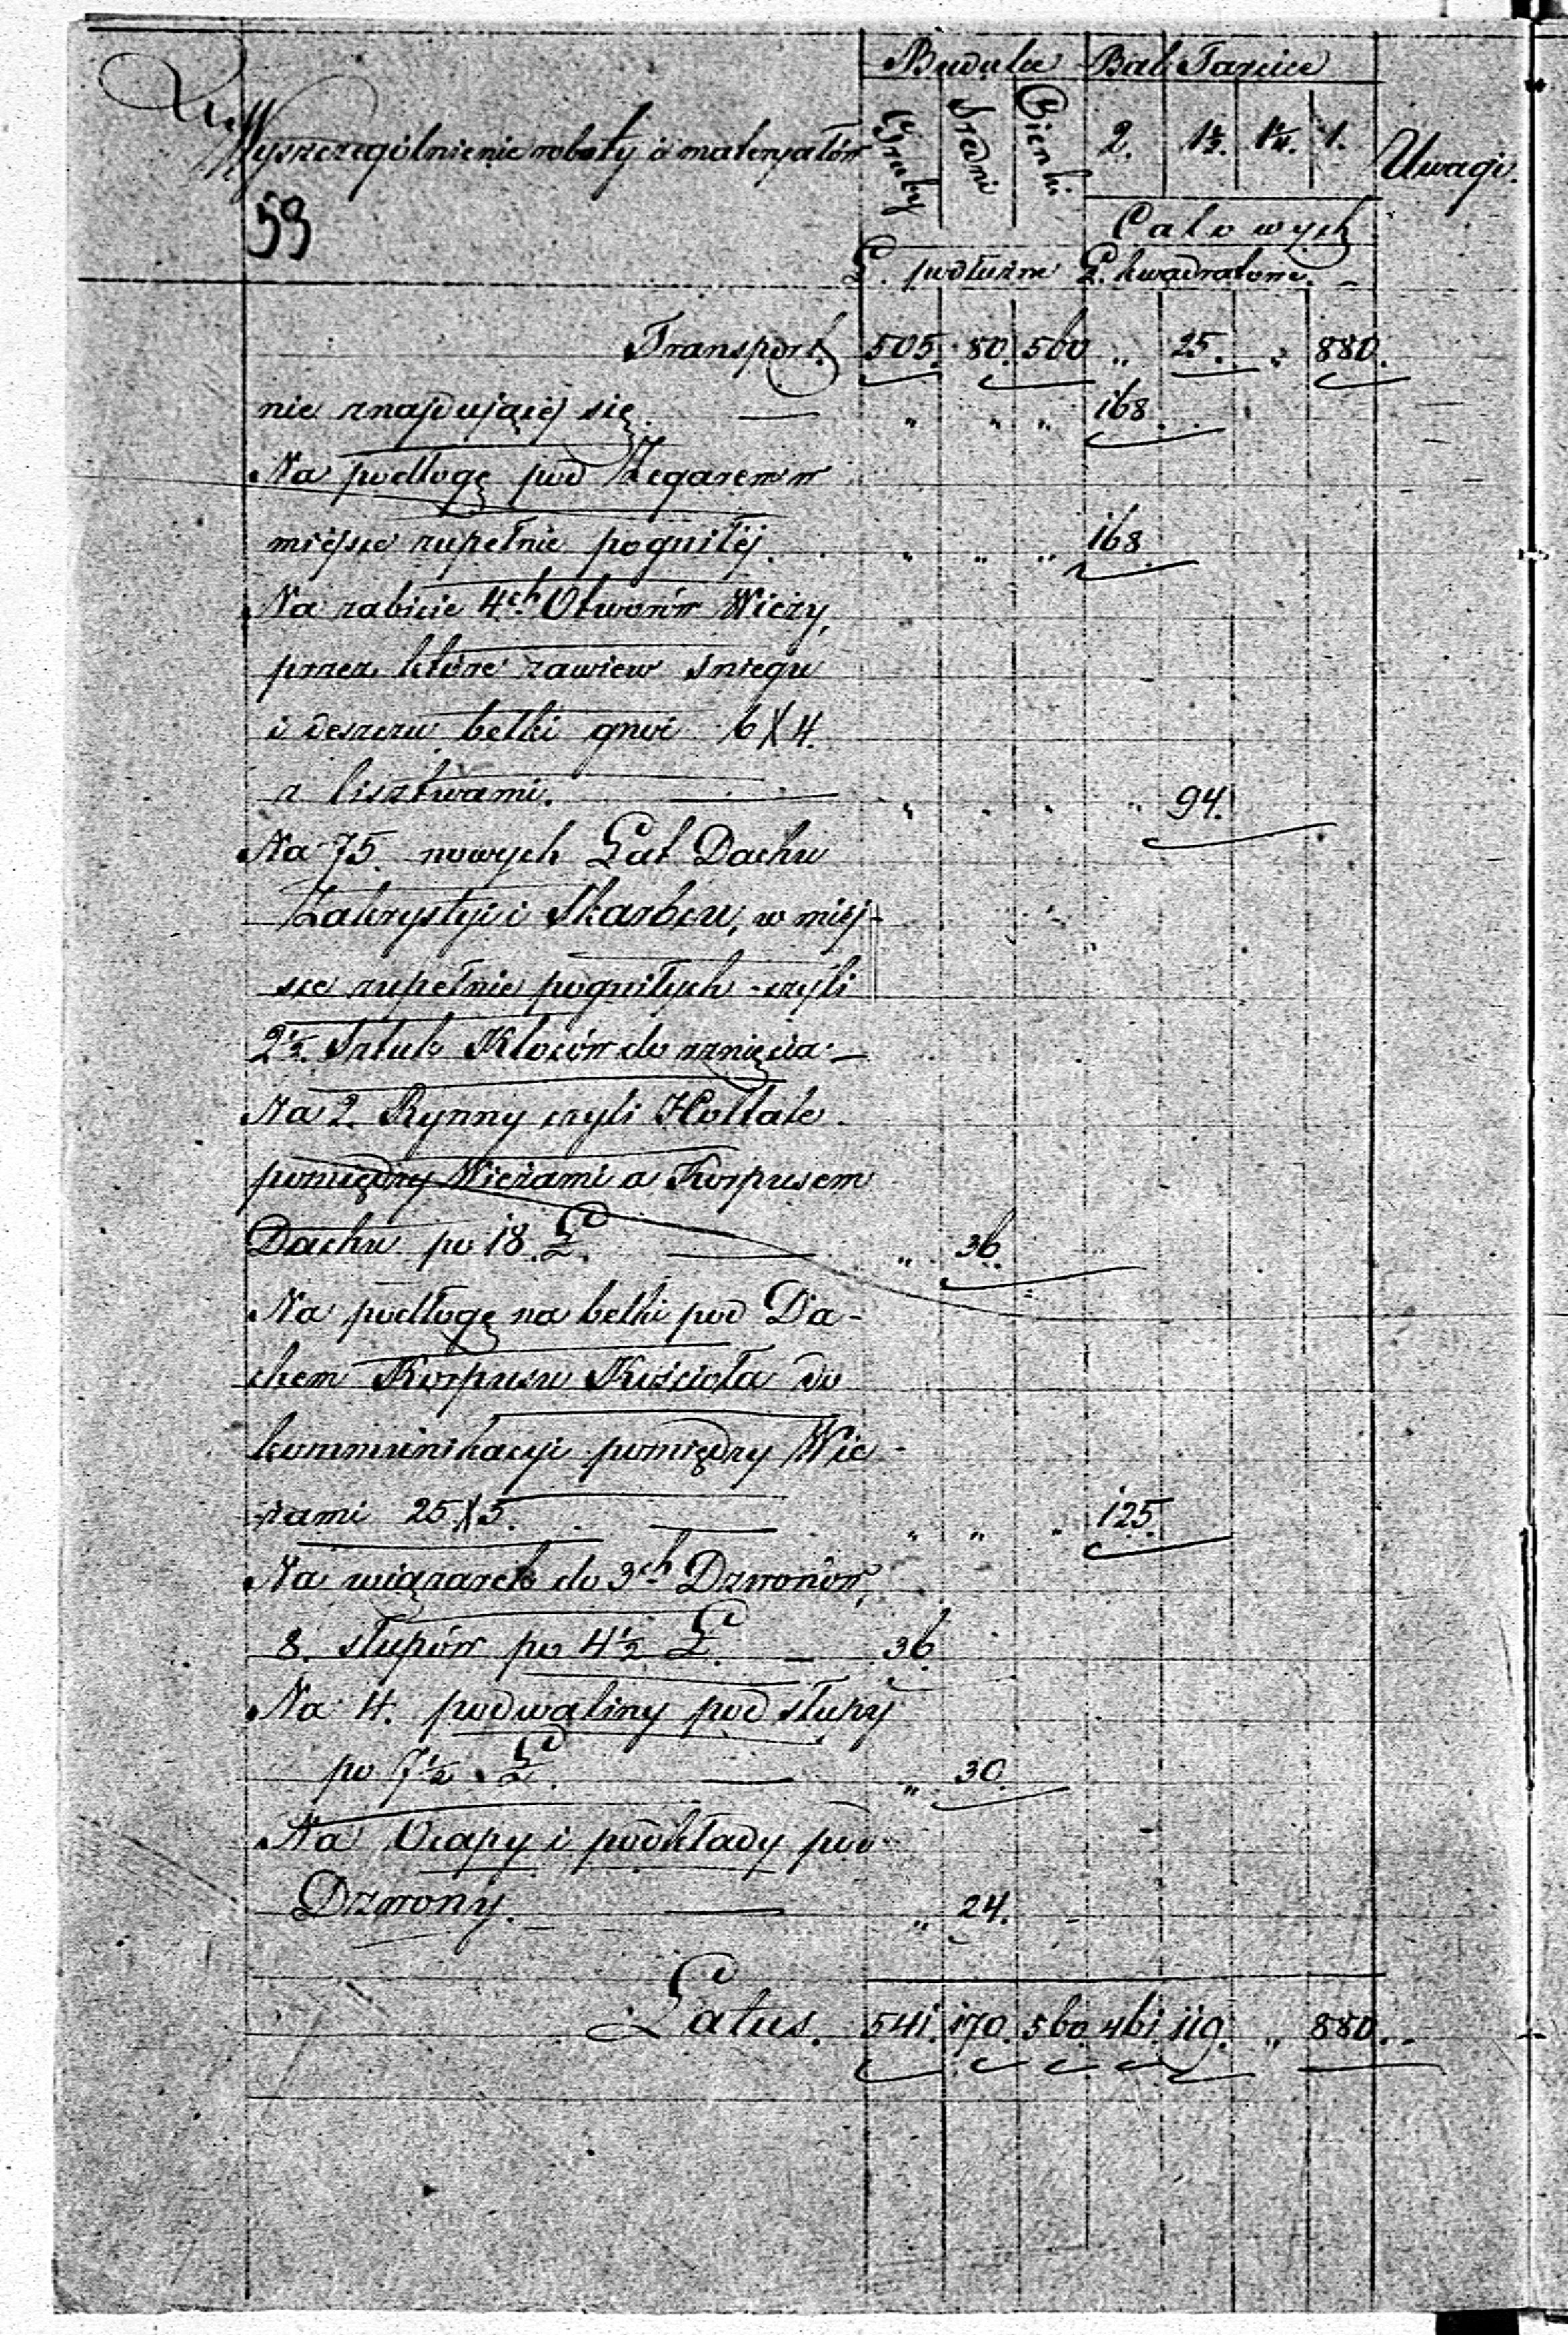 Budulec Bal Tarcice
Nr Wyszczególnienie roboty i materyałów Gruby Średni Cienki 2. 1½. 1¼. 1. Uwagi.
59
Calowych
Ł. podłużne Ł. kwadratowe.
Transport 505. 80. 560 " 25. " 880.
nie znajdującej się. — " " " 168.
Na podłogę pod Zegarem w
miejsce zupełnie pogniłéj. " " " 168
Na zabicie 4ch Otworów Wieży,
przez które zawiew śniegu
i deszczu belki gnoi 6X4.
z lisztwami. — " " " " 94.
Na 75 nowych Łat Dachu
Zakrystyi i Skarbcu, w miej-
sce zupełnie pogniłych czyli
2½. Sztuk Kloców do rznięcia —
Na 2. Rynny czyli Holtale
pomiędzy Wieżami a Korpusem
Dachu po 18. Ł. — " 36.
Na podłogę na belki pod Da-
chem Korpusu Kościoła do
kommunikacyi pomiędzy Wie-
żami 25X5. — " " " 125.
Na wiązarek do 3ch Dzwonów,
8. słupów po 4½ Ł. — 36.
Na 4. podwaliny pod słupy
po 7½ Ł. — " 30.
Na Ocapy i podkłady pod
Dzwony. — " 24.
Latus. 541. 170. 560. 461. 119. " 880.